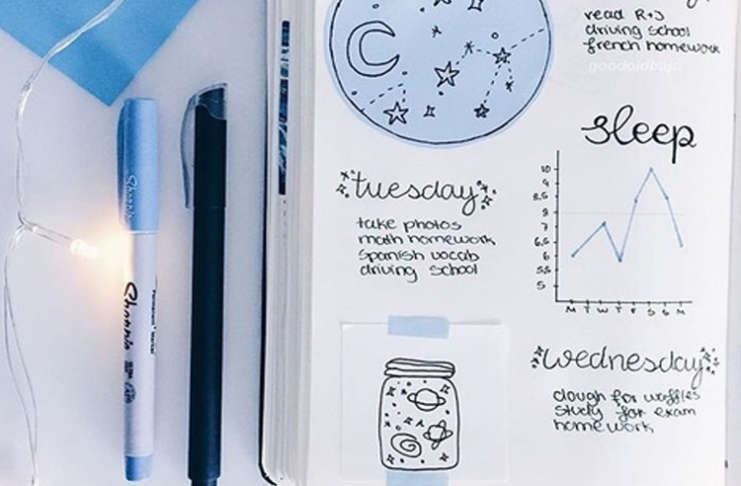 read R+J
driving school
french homework
Sharpie
Sharpie
tuesday
take photos
math homework
spanish vocab
driving school
sleep
10
9
8.5
8
7
6.5
6
5.5
5
M T W T F S S M
wednesday
dough for waffles
study for exam
homework